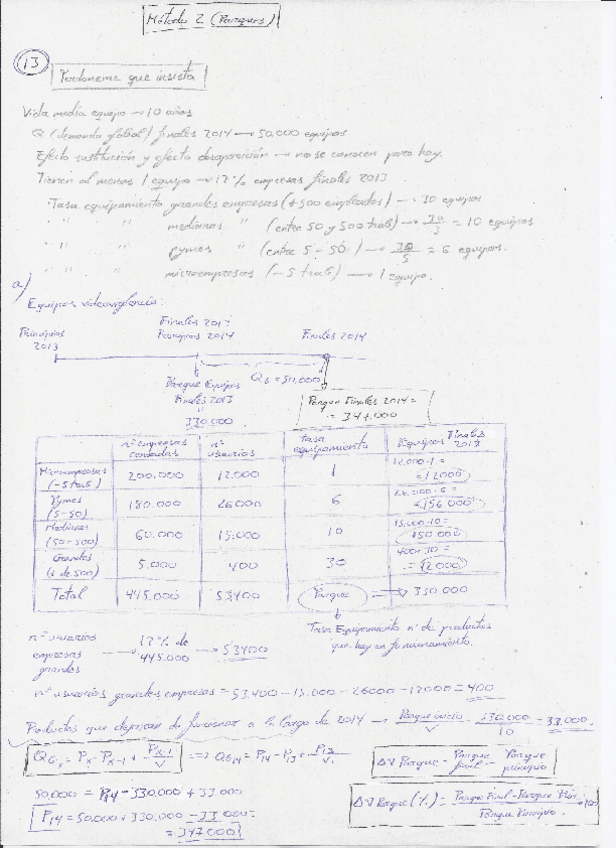 Método 2 (Parques)
13
Perdoneme que insista
Vida media equipo → 10 años
Q (demanda global) finales 2014 → 50.000 equipos
Efecto sustitución y efecto desaparición → no se conocen para hoy.
Tienen al menos 1 equipo → 12% empresas finales 2013
Tasa equipamiento grandes empresas (+500 empleados) → 30 equipos
" " " medianas " (entre 50 y 500 trab) → 30/3 = 10 equipos
" " " pymes " (entre 5-50) → 30/5 = 6 equipos.
" " " microempresas (-5 trab) → 1 equipo.
a)
Equipos videovigilancia:
Principios 2013
Finales 2013
Principios 2014
Finales 2014
QG = 50.000
Parque Equipos
Finales 2013
"
330.000
Parque Finales 2014 =
= 347.000
nº empresas censadas nº usuarios tasa equipamiento Equipos Finales 2013
Microempresas (-5 trab) 200.000 12.000 1 12.000·1 = 12000
Pymes (5-50) 180.000 26000 6 26.000·6 = 156.000
Medianas (50-500) 60.000 15.000 10 15.000·10 = 150.000
Grandes (+ de 500) 5.000 400 30 400·30 = 12000
Total 445.000 53400 Parque → 330.000
Tasa Equipamiento nº de productos
que hay en funcionamiento.
nº usuarios empresas grandes → 12% de 445.000 → 53400
nº usuarios grandes empresas = 53.400 - 15.000 - 26000 - 12000 = 400
Productos que dejarán de funcionar a lo largo de 2014 → Parque inicio/V = 330.000/10 = 33.000.
QGx = Px - Px-1 + Px-1/V ⇒ QG14 = P14 - P13 + P13/V
50.000 = P14 - 330.000 + 33.000
P14 = 50.000 + 330.000 - 33.000 =
= 347.000
ΔV Parque = Parque final - Parque principio
ΔV Parque (%) = Parque Final - Parque Prin. / Parque Principio · 100